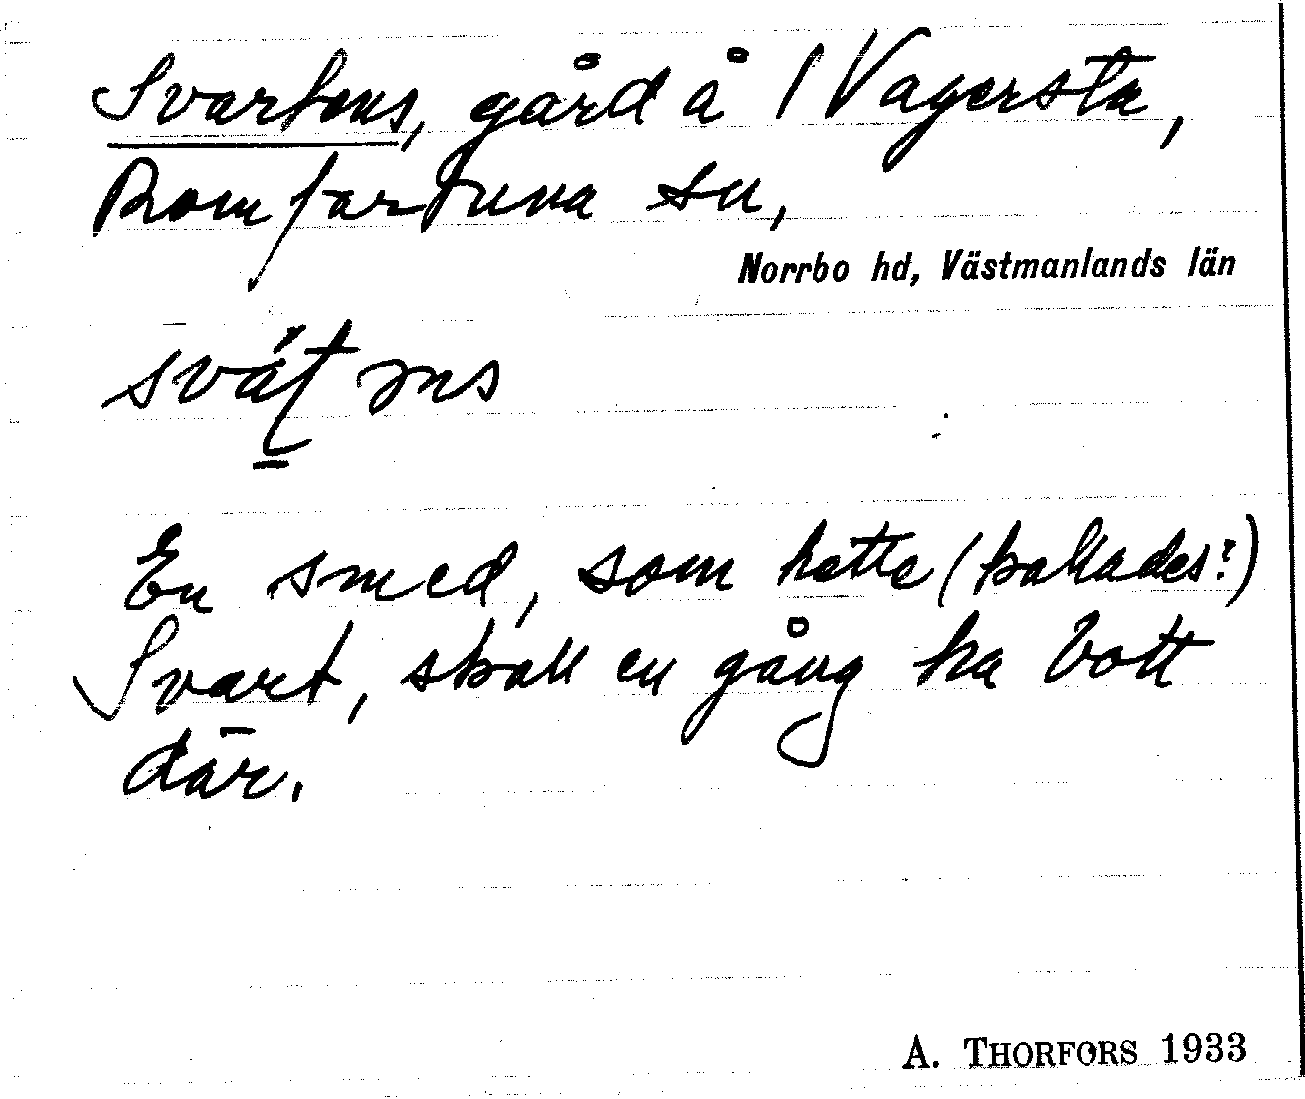 Svartens, gård å 1 Vagersta,
Romfartuna sn,
Norrbo hd, Västmanlands län
svát əns
En smed, som hette (kallades?)
Svart, skall en gång ha bott
där.
A. THORFORS 1933